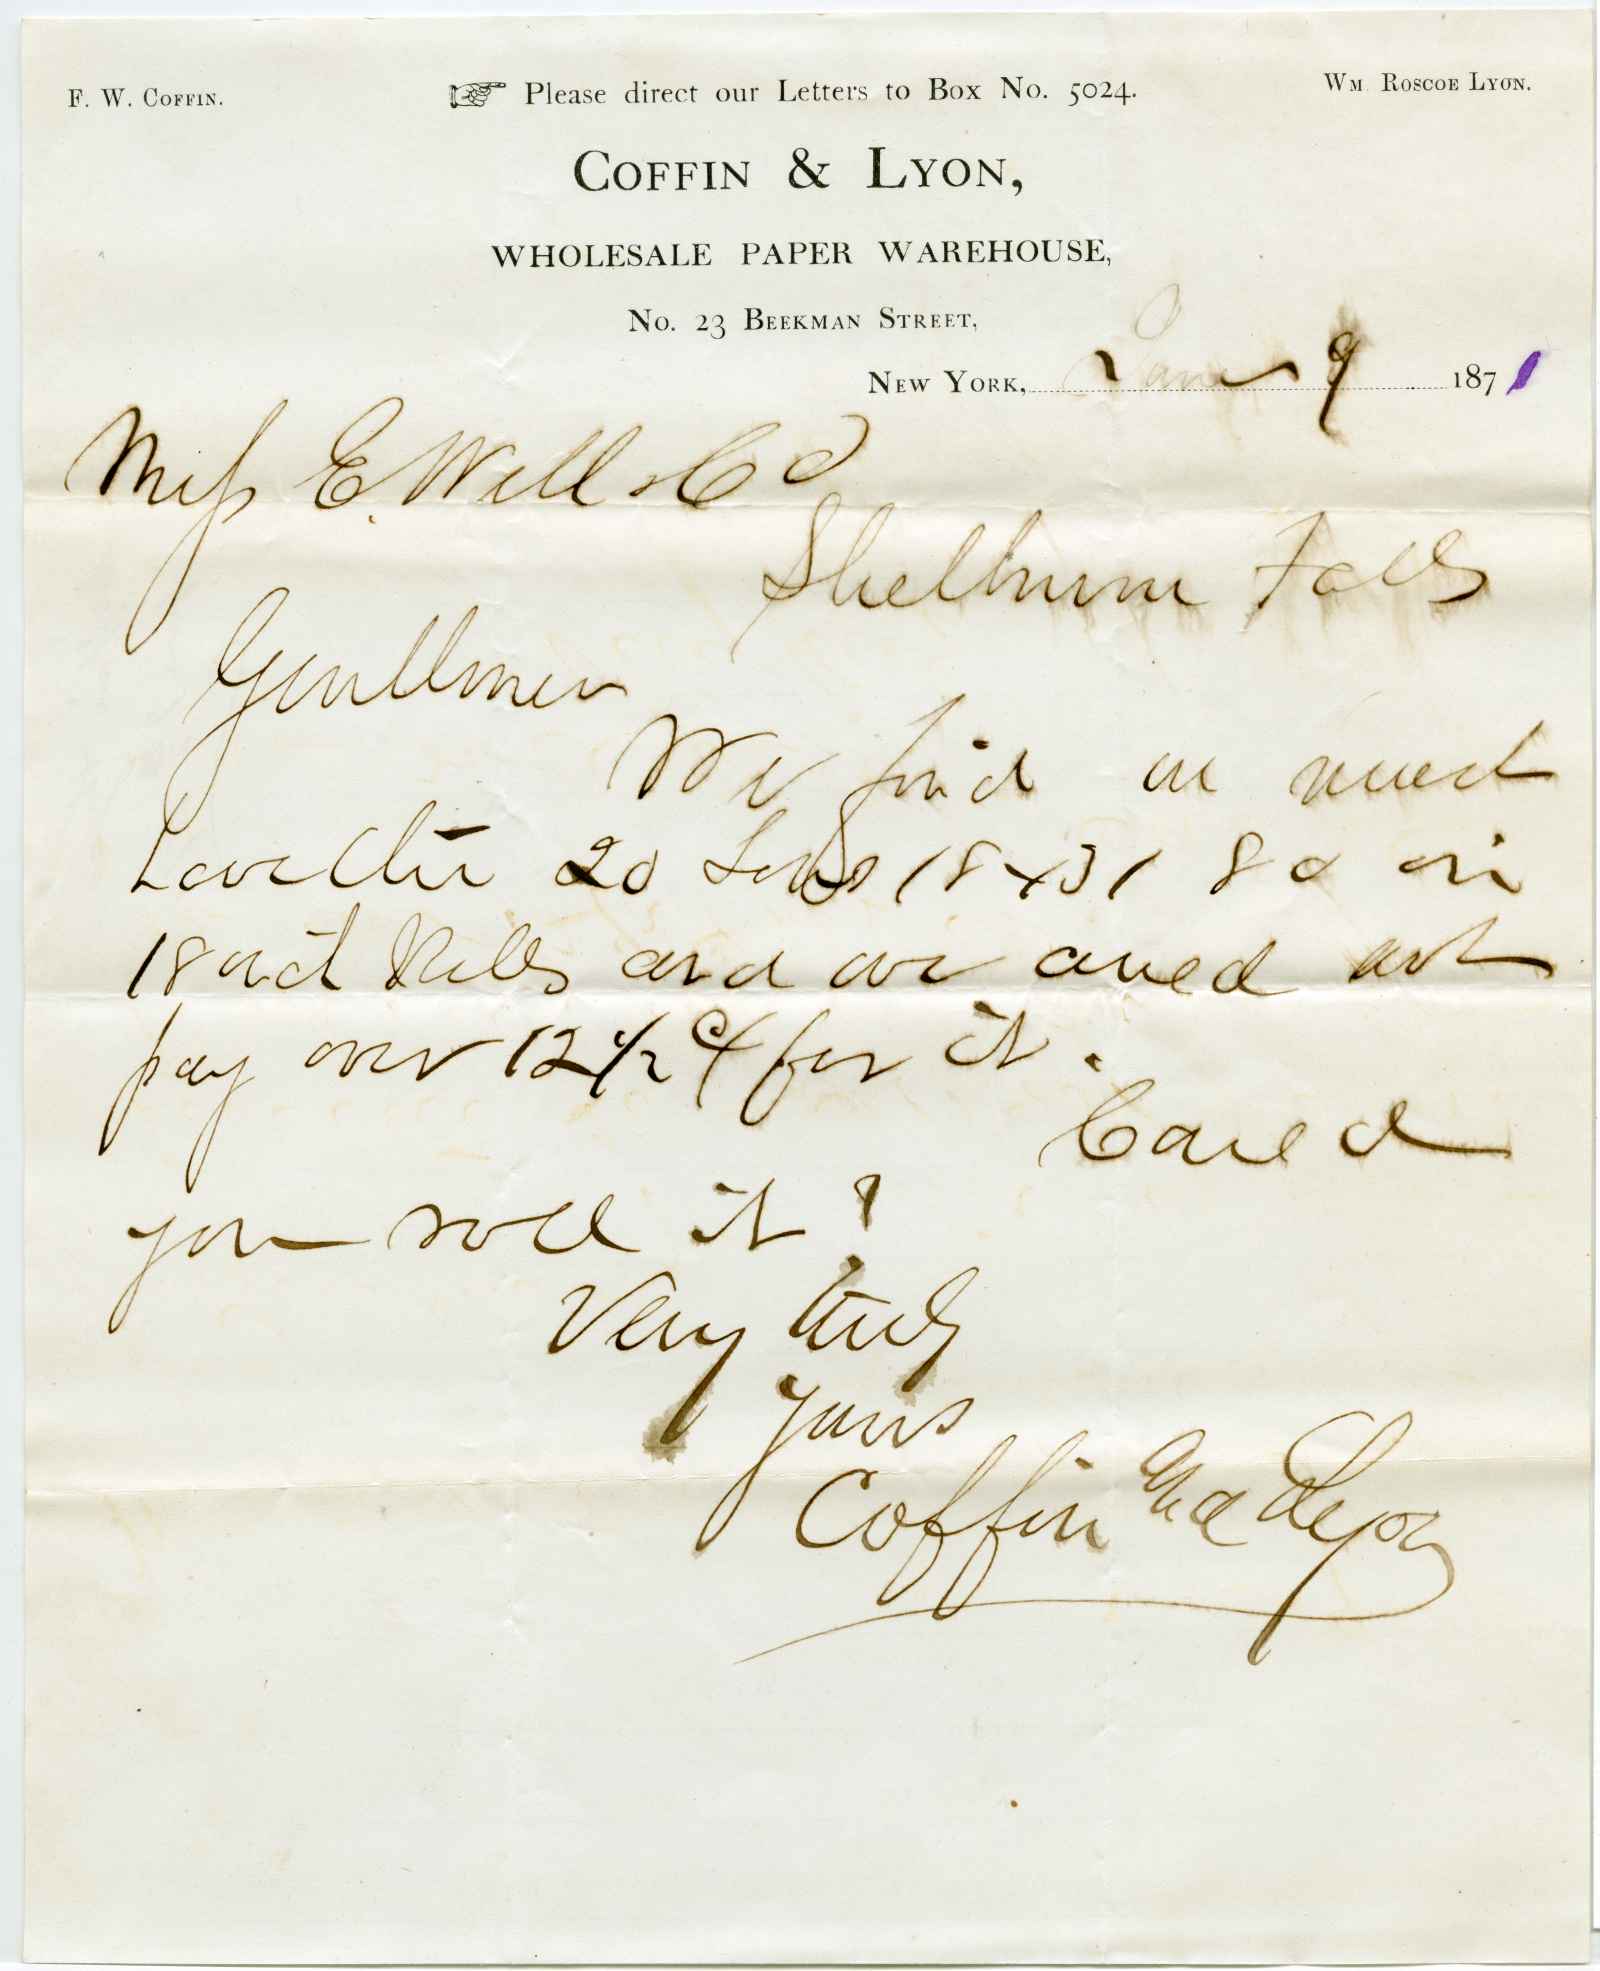 F. W. Coffin.
Please direct our Letters to Box No. 5024.
Wm Roscoe Lyon.
Coffin & Lyon,
WHOLESALE PAPER WAREHOUSE,
No. 23 Beekman Street,
New York, Jany 9 1871
Mess E. Will & Co
Shelburne Falls
Gentlemen
We find we need
20 Tons 18x31 80 or in
18 inch Rolls and we could not
pay over 12 1/2 c for it.
Could
you roll it?
Very truly
Yours
Coffin and Lyon